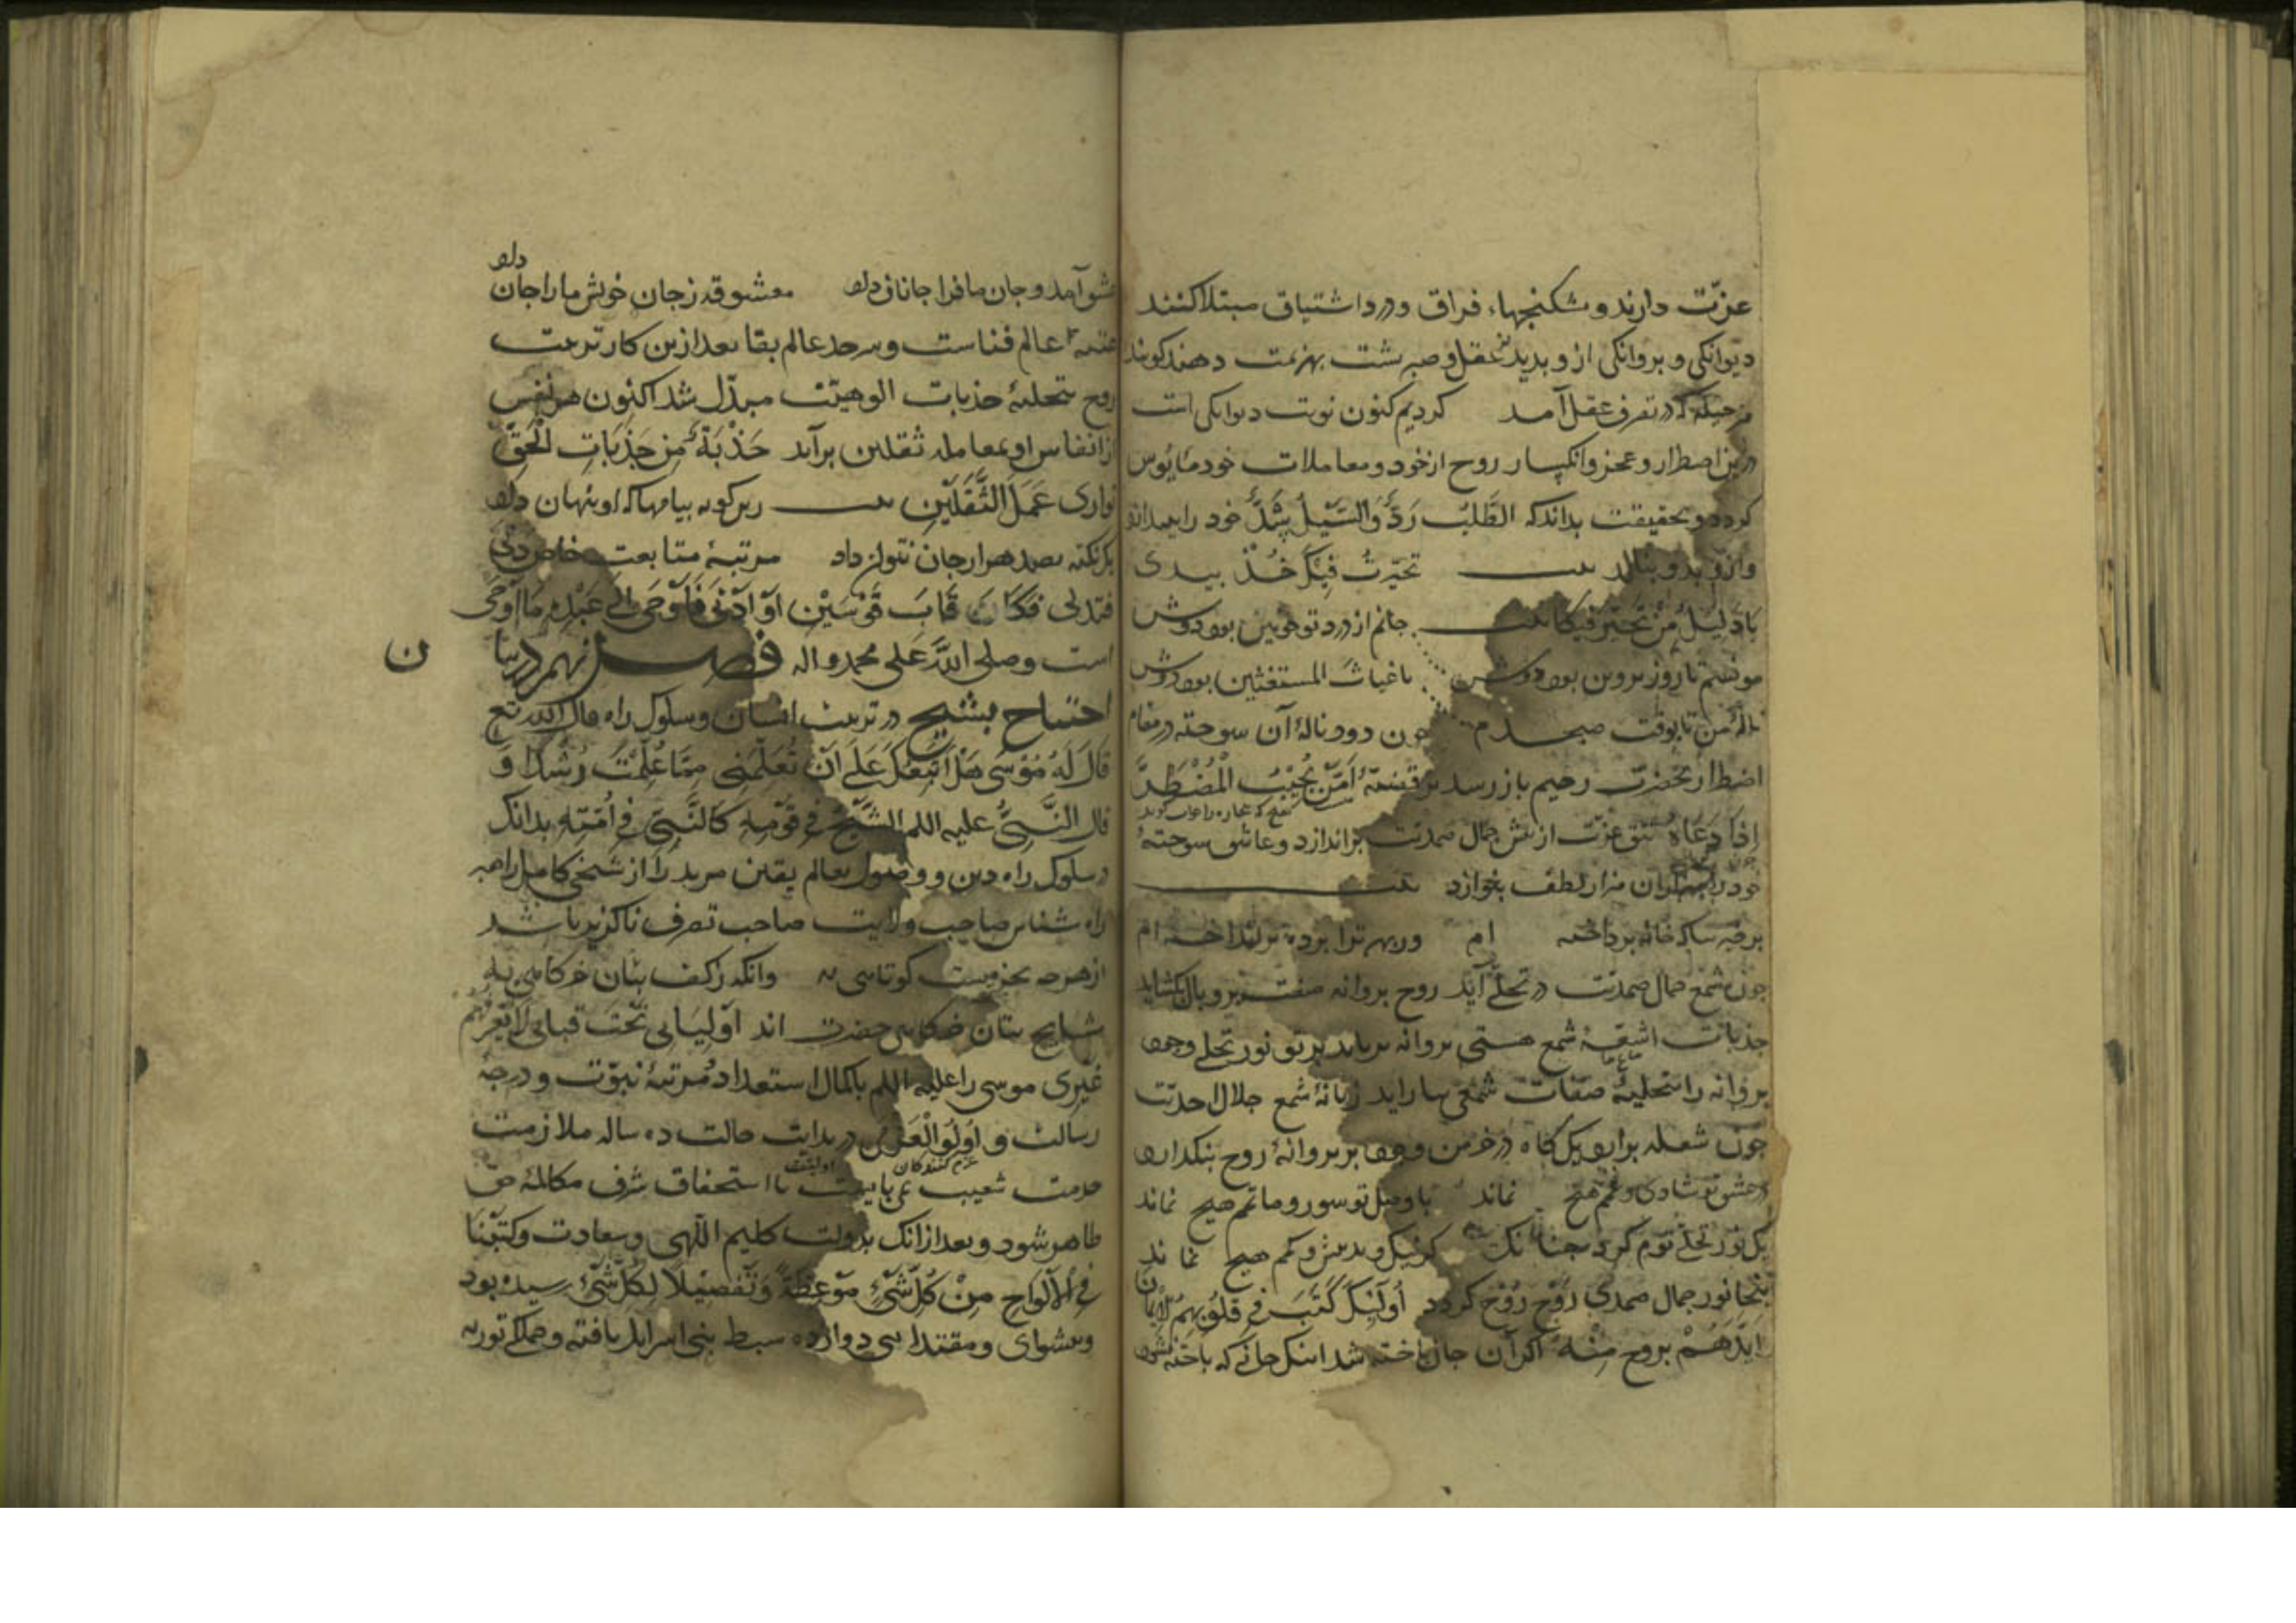 عزّت دارند و شکنجهاء فراق و درد اشتیاق مبتلا کنند
دیوانکی و بروانکی ازو بدید عقل و صبر بشت بهزیمت دهند کویند
هر حیله که در تصرف عقل آمد کردیم کنون نوبت دیوانکی است
درین اضطرار و عجز و انکسار روح از خود و معاملات خود مایوس
کردد و بحقیقت بداند که الطَّلَبُ رَدٌّ وَالسَّبِیلُ سَدٌّ خود را بیندازد
وازو بدو بنالد بیت تحیّرتُ فیکَ خُذْ بیدی
یا دَلیلُ مَنْ تَحَیَّرَ فیکا بیت جانم از درد تو حزین بود دوش
مونسم تا روز بروین بود دوش یا غیاث المستغثین بود دوش
نالۀ من تا بوقت صبحدم چون دود نالۀ آن سوخته در مقام
اضطرار بحضرت رحیم باز رسد بر قضیّۀ اَمَّنْ یُجِیْبُ الْمُضْطَرَّ
اِذَا دَعَاهُ تتق عزّت از بیش جمال صمدیّت براندازد و عاشق سوختۀ
خود را بهزاران هزار لطف بنوازد بیت
برخیز بیا که خانه برداخته ام وز بهر ترا برده برانداخته ام
چون شمع جمال صمدیّت در تجلّی آید روح بروانه صفت بر و بال بکشاید
جذبات اشعّۀ شمع هستی بروانه برباید برتو نور تجلی وجود
بروانه را بتحلیۀ صفات شمعی بیاراید زبانۀ شمع جلال احدیّت
چون شعله برارد یک کاه در خرمن وجود بر بروانۀ روح بنکذارد
در عشق تو شادی و غمم هیچ نماند با وصل تو سور و ماتم هیچ نماند
یک نور تجلی توم کرد چنانک کز نیک و بد و بیش و کم هیچ نماند
اینجا نور جمال صمدی رَوْحِ رُوْح کردد اُولَئِکَ کَتَبَ فِی قُلُوبِهِمُ الْاِیْمَانَ
اَیَّدَهُمْ بروح مِنْهُ اکر آن جان باخته شد اینک جانی که باخته نشود
عشق آمد و جان ما فرا جانان داد معشوقه ز جان خویش ما را جان داد
عتبۀ عالم فناست و سرحد عالم بقا بعد ازین کار تربیت
روح بتحلیۀ جذبات الوهیّت مبدّل شد اکنون هر نفس
از انفاس او بمعامله ثقلین برآید جَذْبَةٌ مِنْ جَذَبَاتِ الْحَقّ
توازی عَمَلَ الثَّقَلَیْنِ بیت زین کونه بیامها که او بنهان داد
یک نکته بصد هزار جان نتوان داد مرتبۀ متابعت خاص دَنَی
فتدلی فکان قَابَ قَوْسَیْنِ اَوْ اَدْنَی فَاَوْحَی اِلَی عَبْدِهِ مَا اَوْحَی
است وصلی اللّه عَلی محمد واله فصل نهم در بیان
احتیاج بشیخ در تربیت انسان و سلوک راه قال اللّه تع
قَالَ لَهُ مُوْسَی هَلْ اَتَّبِعُکَ عَلَی اَنْ تُعَلِّمَنِی مِمَّا عُلِّمْتَ رُشْدًا وَ
قال النَّبیُّ علیه اللم الشَّیْخُ فِی قَوْمِهِ کَالنَّبِیِّ فِی اُمَّتِهِ بدانک
در سلوک راه دین و وصول بعالم یقین مرید را از شیخی کامل راهبر
راه شناس صاحب ولایت صاحب تصرف ناکزیر باشد
مشایخ بنان حضرت اند اَوْلِیَائی تَحْتَ قبابی لَا یَعْرِفُهُمْ
غَیْرِی موسی را علیه اللم باکمال استعداد مرتبۀ نبوّت و درجۀ
رسالت و اُولُوالْعَزْمی در بدایت حالت ده ساله ملازمت
خدمت شعیب می بایست تا استحقاق شرف مکالمۀ حق
ظاهر شود و بعد از انک بدولت کلیم اللّهی و سعادت وَکَتَبْنَا
فِی الْاَلْوَاحِ مِنْ کُلِّ شَیْءٍ مَوْعِظَةً وَتَفْصِیْلًا لِکُلِّ شَیْءٍ رسیده بود
و بیشوای و مقتدایی دوازده سبط بنی اسرایل یافته و جملکی توریة